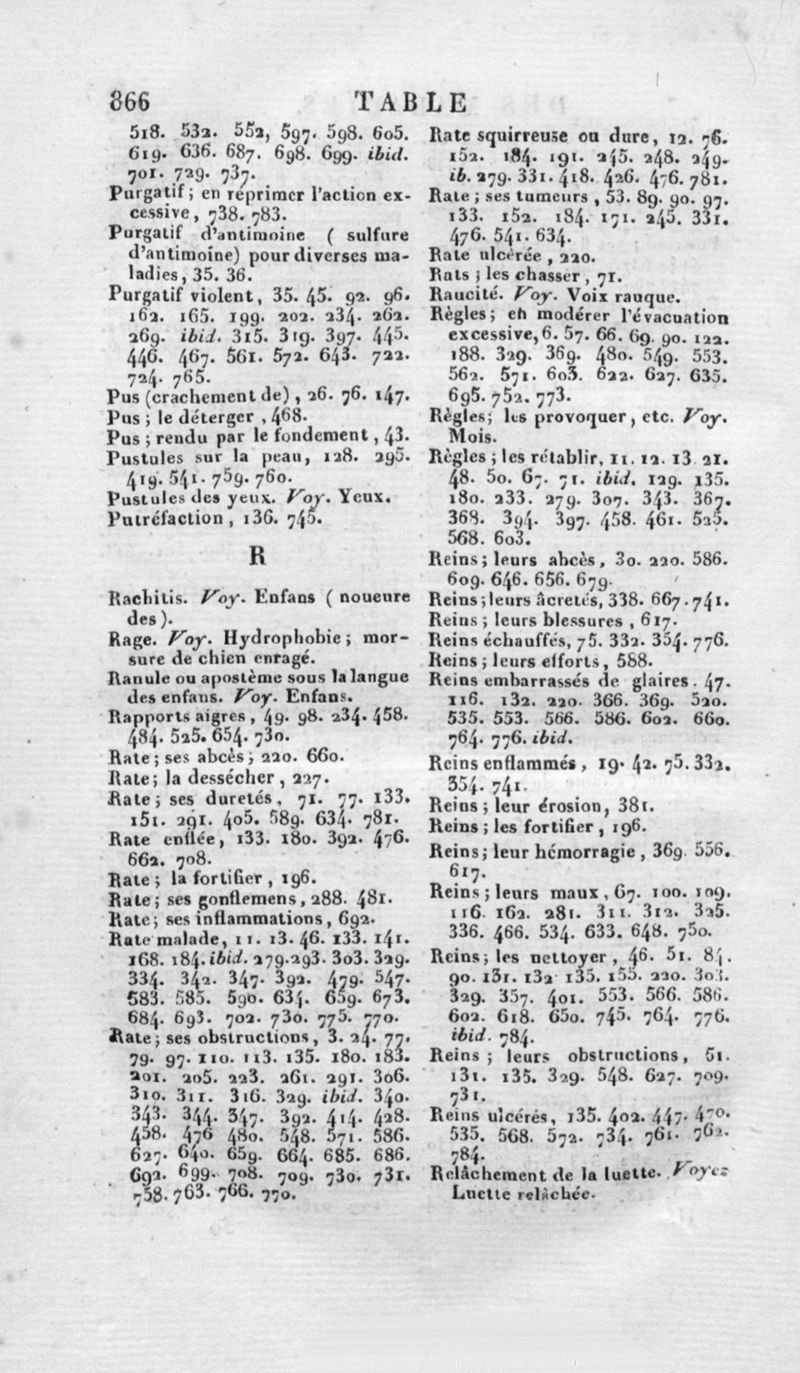 866
TABLE
518. 532. 552, 597. 598. 605.
619. 636. 687. 698. 699. ibid.
701. 729. 737.
Purgatif ; en réprimer l'action ex-
cessive, 738. 783.
Purgatif d'antimoine ( sulfure
d'antimoine) pour diverses ma-
ladies, 35. 36.
Purgatif violent, 35. 45. 92. 96.
162. 165. 199. 202. 234. 262.
269. ibid. 315. 319. 397. 445.
446. 467. 561. 572. 643. 722.
724. 765.
Pus (crachement de), 26. 76. 147.
Pus ; le déterger , 468.
Pus ; rendu par le fondement, 43.
Pustules sur la peau, 128. 295.
419. 541. 759. 760.
Pustules des yeux. Voy. Yeux.
Putréfaction, 136. 745.
R
Rachitis. Voy. Enfans ( noueure
des ).
Rage. Voy. Hydrophobie ; mor-
sure de chien enragé.
Ranule ou apostème sous la langue
des enfans. Voy. Enfans.
Rapports aigres, 49. 98. 234. 458.
484. 525. 654. 730.
Rate ; ses abcès ; 220. 660.
Rate ; la dessécher , 227.
Rate ; ses duretés, 71. 77. 133.
151. 291. 405. 589. 634. 781.
Rate enflée, 133. 180. 392. 476.
662. 708.
Rate ; la fortifier, 196.
Rate ; ses gonflemens, 288. 481.
Rate ; ses inflammations, 692.
Rate malade, 11. 13. 46. 133. 141.
168. 184. ibid. 279. 293. 303. 329.
334. 342. 347. 392. 479. 547.
583. 585. 590. 634. 659. 673.
684. 693. 702. 730. 775. 770.
Rate ; ses obstructions, 3. 24. 77.
79. 97. 110. 113. 135. 180. 183.
201. 205. 223. 261. 291. 306.
310. 311. 316. 329. ibid. 340.
343. 344. 347. 392. 414. 428.
458. 476 480. 548. 571. 586.
627. 640. 659. 664. 685. 686.
692. 699. 708. 709. 730. 731.
758. 763. 766. 770.
Rate squirreuse ou dure, 12. 76.
152. 184. 191. 245. 248. 249.
ib. 279. 331. 418. 426. 476. 781.
Rate ; ses tumeurs , 53. 89. 90. 97.
133. 152. 184. 171. 245. 331.
476. 541. 634.
Rate ulcérée , 220.
Rats ; les chasser , 71.
Raucité. Voy. Voix rauque.
Règles ; en modérer l'évacuation
excessive, 6. 57. 66. 69. 90. 122.
188. 329. 369. 480. 549. 553.
562. 571. 603. 622. 627. 635.
695. 752. 773.
Règles ; les provoquer, etc. Voy.
Mois.
Règles ; les rétablir, 11. 12. 13 21.
48. 50. 67. 71. ibid. 129. 135.
180. 233. 279. 307. 343. 367.
368. 394. 397. 458. 461. 525.
568. 603.
Reins ; leurs abcès, 30. 220. 586.
609. 646. 656. 679.
Reins ; leurs âcretés, 338. 667. 741.
Reins ; leurs blessures , 617.
Reins échauffés, 75. 332. 354. 776.
Reins ; leurs efforts, 588.
Reins embarrassés de glaires. 47.
116. 132. 220. 366. 369. 520.
535. 553. 566. 586. 602. 660.
764. 776. ibid.
Reins enflammés , 19. 42. 75. 332.
354. 741.
Reins ; leur érosion, 381.
Reins ; les fortifier , 196.
Reins ; leur hémorragie , 369. 556.
617.
Reins ; leurs maux , 67. 100. 109.
116. 162. 281. 311. 312. 325.
336. 466. 534. 633. 648. 750.
Reins ; les nettoyer, 46. 51. 84.
90. 131. 132 135. 155. 220. 303.
329. 357. 401. 553. 566. 586.
602. 618. 650. 745. 764. 776.
ibid. 784.
Reins ; leurs obstructions, 51.
131. 135. 329. 548. 627. 709.
731.
Reins ulcérés, 135. 402. 447. 470.
535. 568. 572. 734. 761. 762.
784.
Relâchement de la luette. Voyez
Luette relâchée.